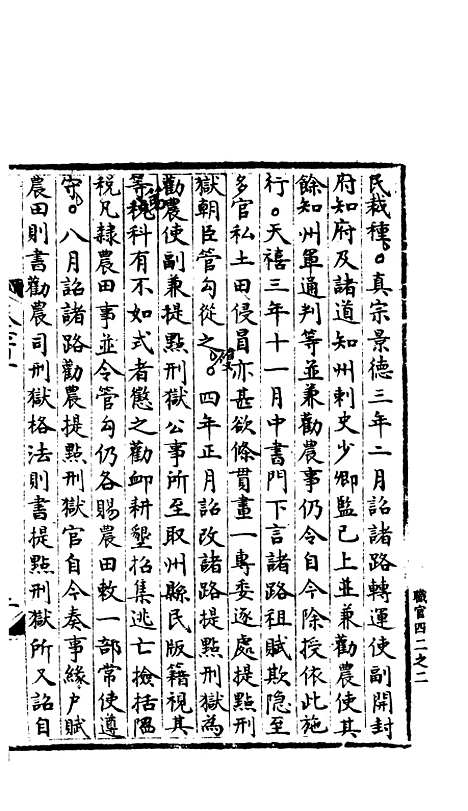 民栽種。真宗景德三年二月詔諸路轉運使副開封
府知府及諸道知州刺史少卿監已上並兼勸農使其
餘知州軍通判等並兼勸農事仍令自今除授依此施
行。天禧三年十一月中書門下言諸路租賦欺隱至
多官私土田侵冒亦甚欲條貫畫一專委逐處提點刑
獄朝臣管勾從之。四年正月詔改諸路提點刑獄為
勸農使副兼提點刑獄公事所至取州縣民版籍視其
等稅科有不如式者懲之勸卹耕墾招集逃亡檢括隱
稅凡隸農田事並令管勾仍各賜農田敕一部常使遵
守。八月詔諸路勸農提點刑獄官自今奏事緣戶賦
農田則書勸農司刑獄格法則書提點刑獄所又詔自
職官四二之二